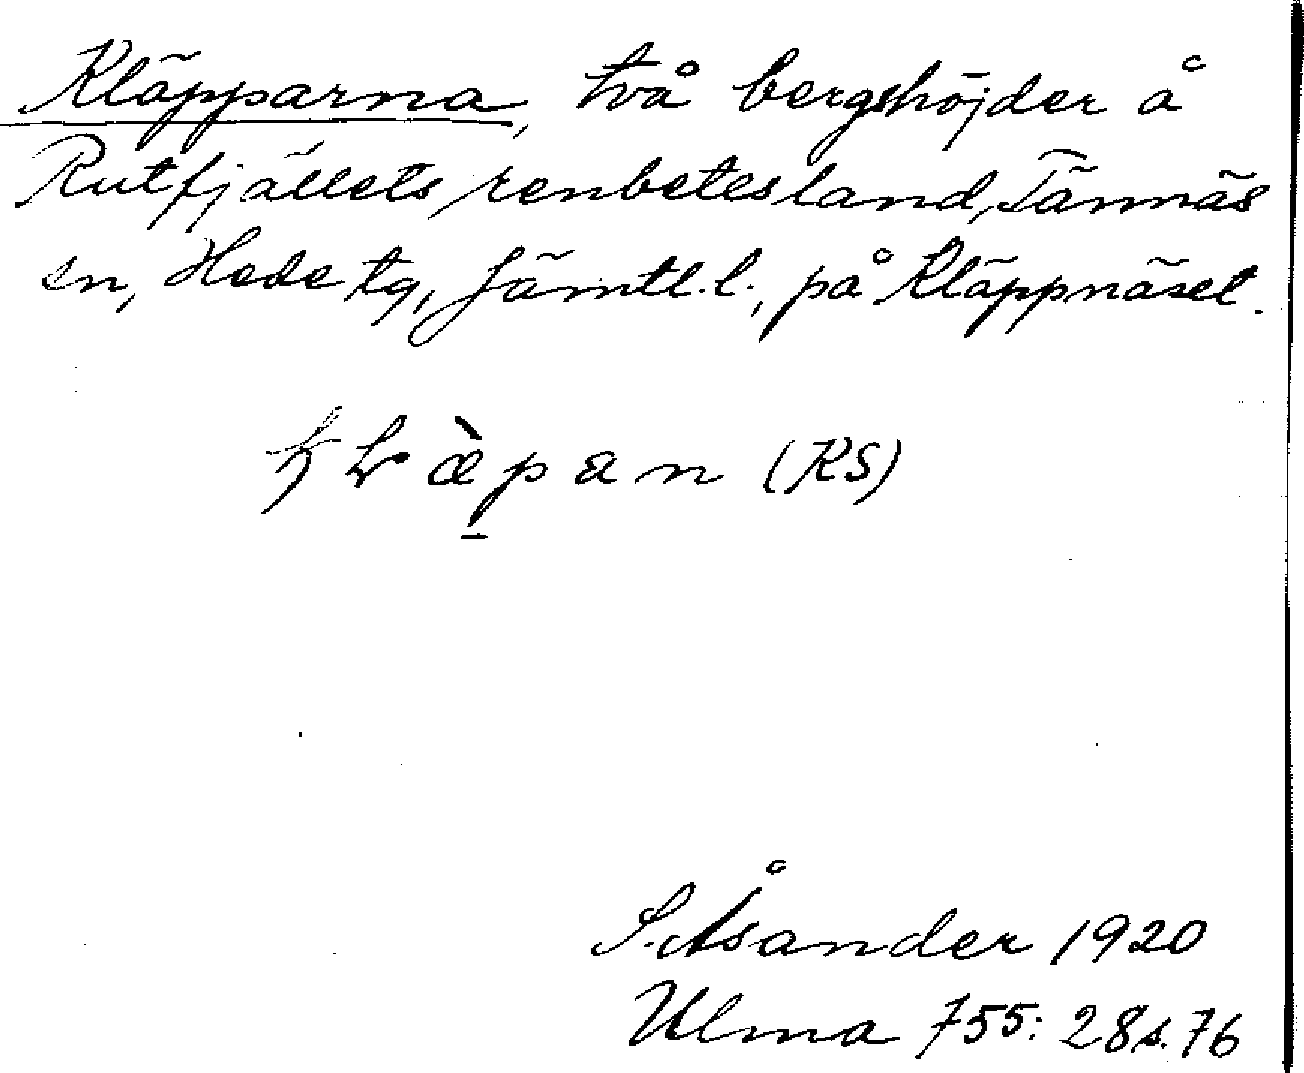 Kläpparna, två bergshöjder å
Rutfjällets renbetesland, Tännäs
sn, Hede tg, Jämtl. l., på Kläppnäset.
(RS)
S. Åsander 1920
Ulma 755: 28 s. 76